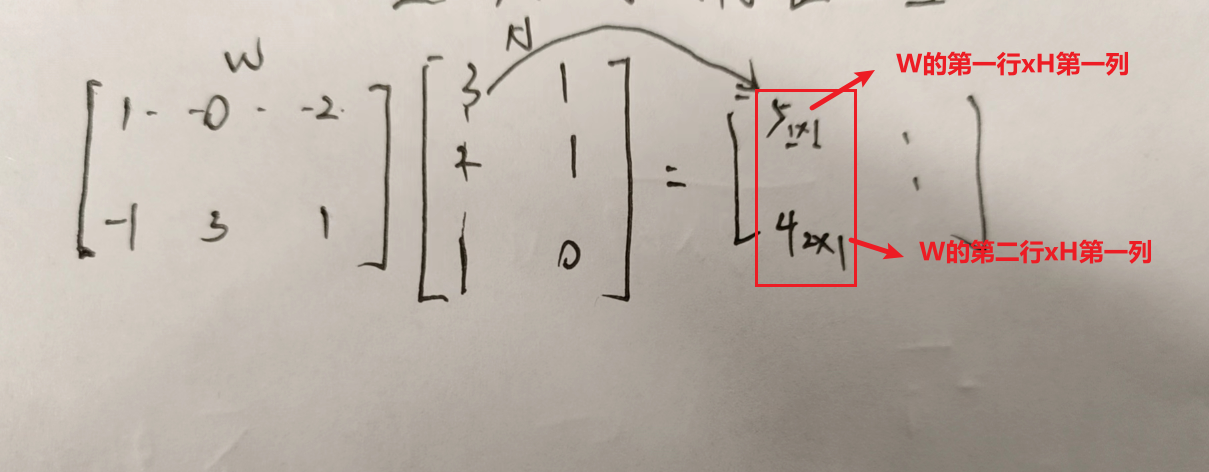 W
H
1 - -0 - -2
-1 3 1
3 1
2 1
1 0
=
5 1x1
4 2x1
W的第一行xH第一列
W的第二行xH第一列